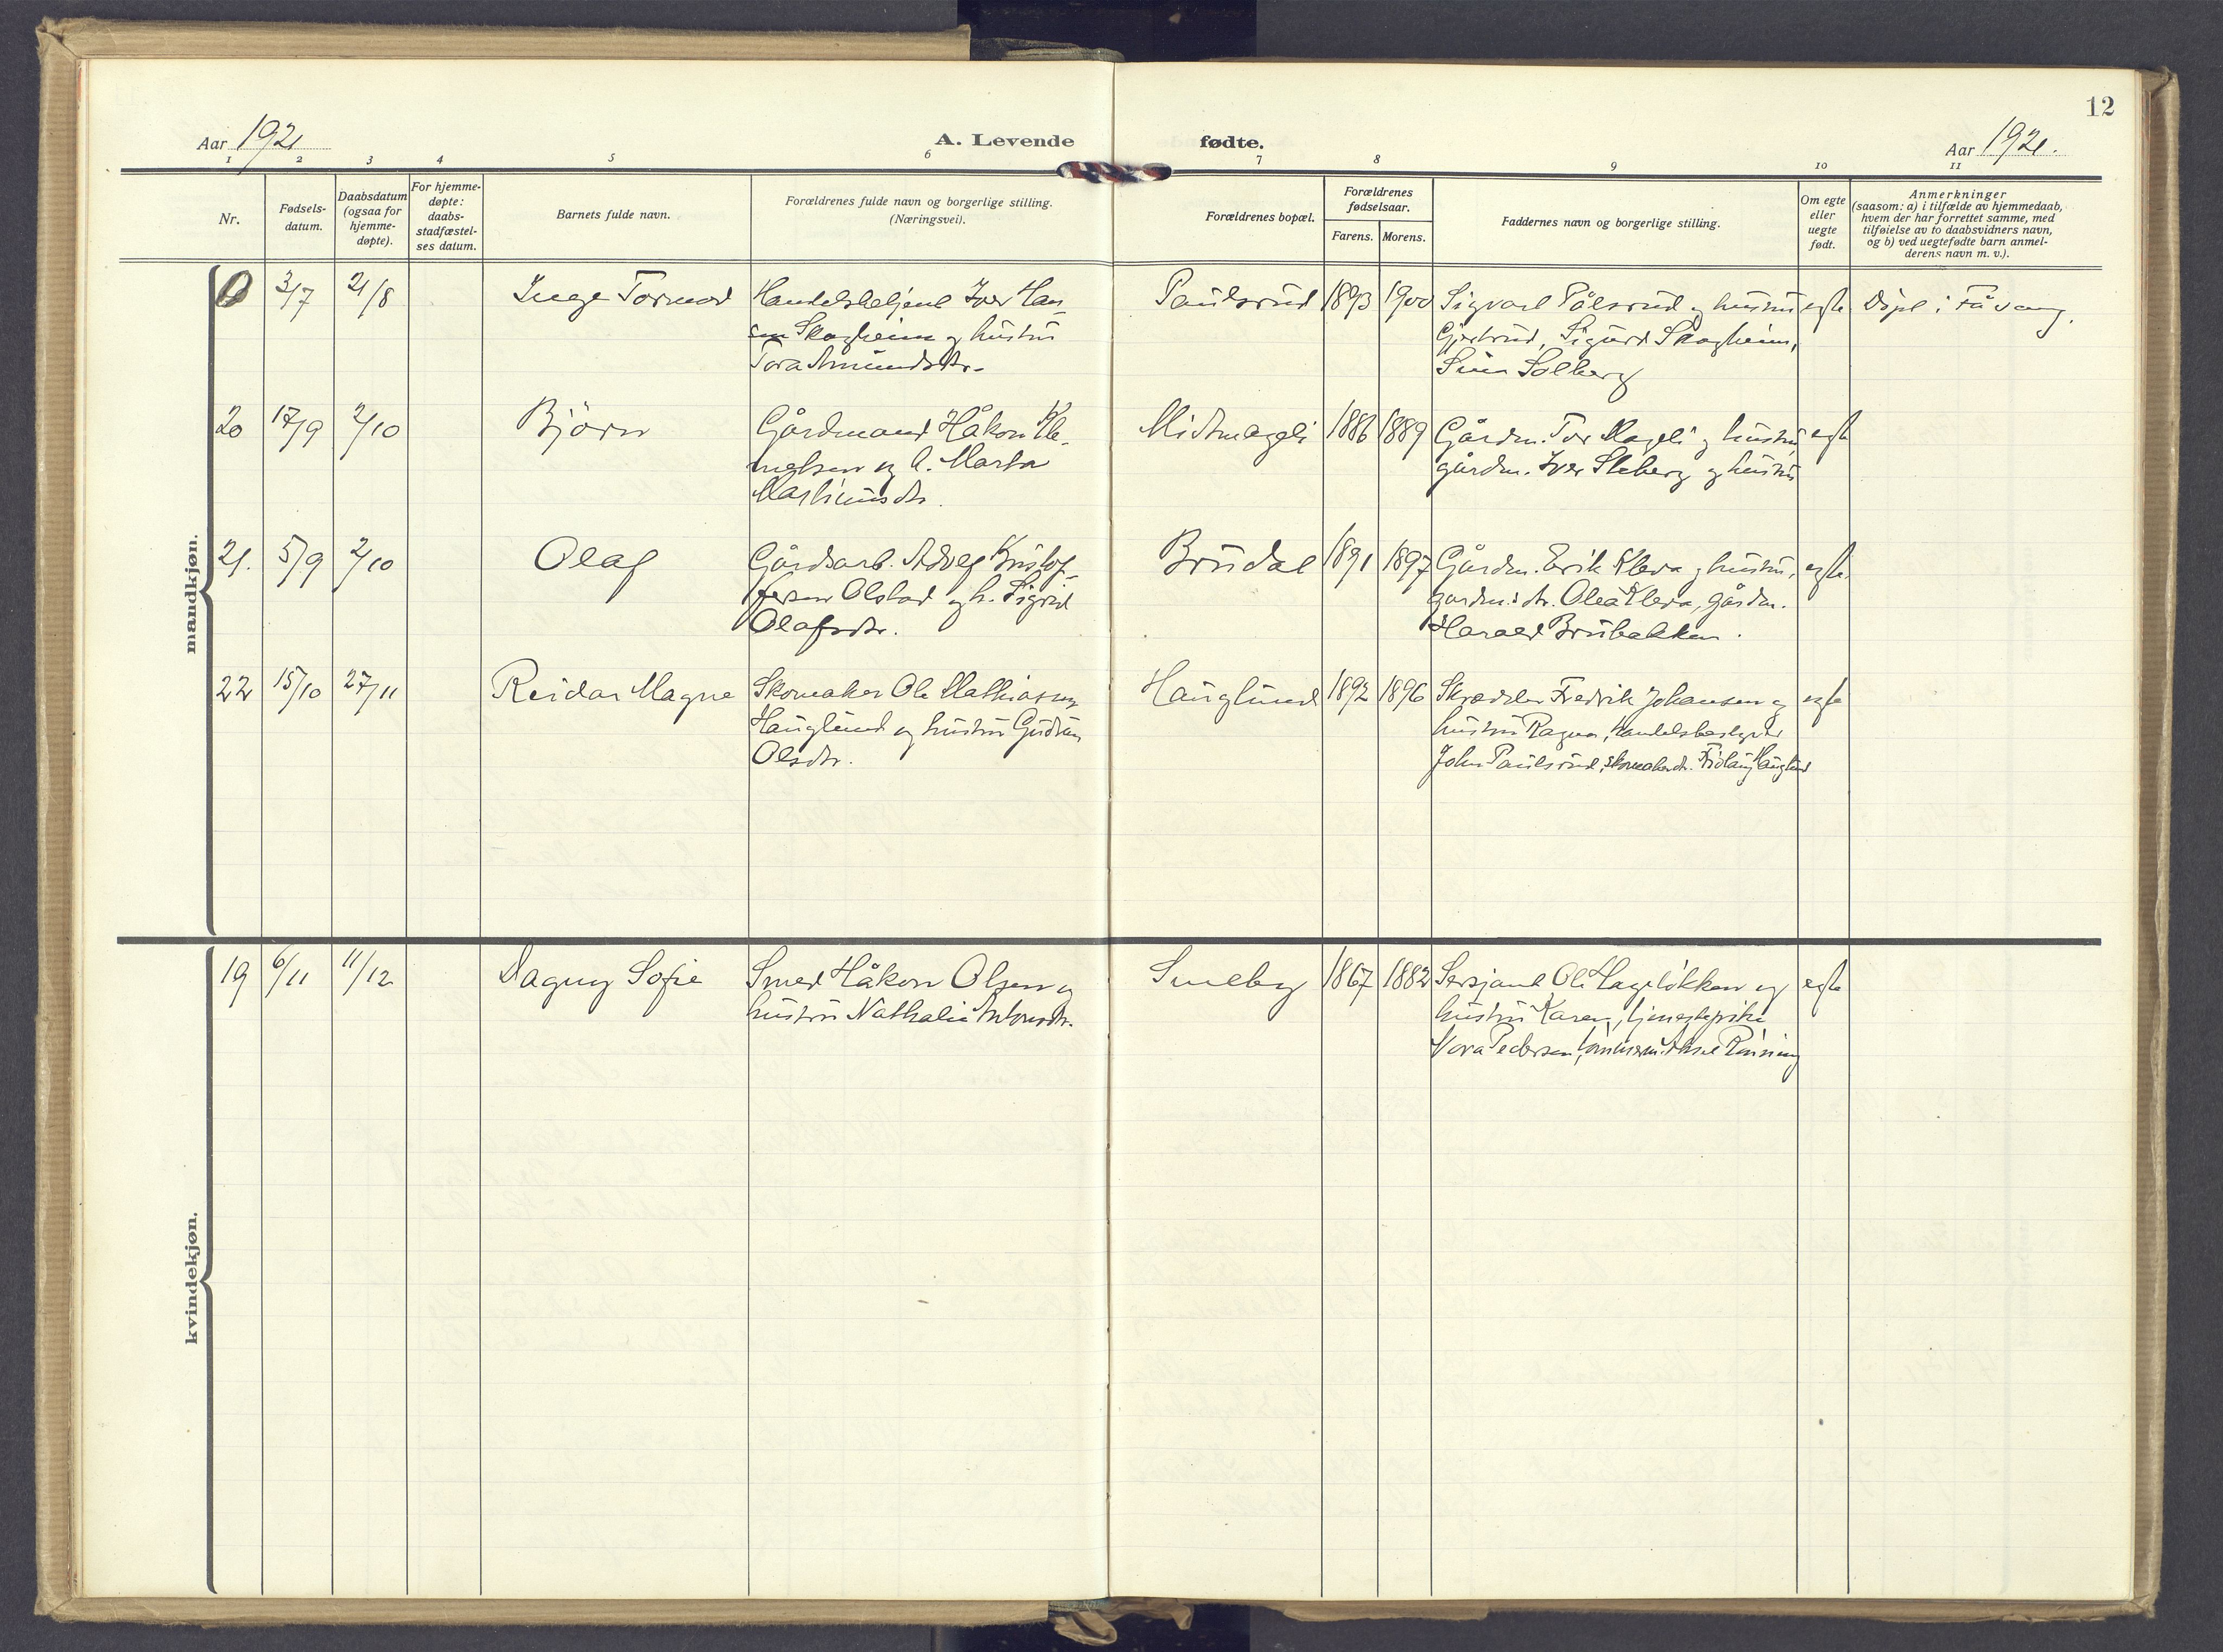 12
Aar 1921 A. Levende fødte. Aar 1921.
1 2 3 4 5 6 7 8 9 10 11
Nr.
Fødsels-
datum.
Daabsdatum
(ogsaa for
hjemme-
døpte).
For hjemme-
døpte:
daabs-
stadfæstel-
ses datum.
Barnets fulde navn.
Forældrenes fulde navn og borgerlige stilling.
(Næringsvei).
Forældrenes bopæl.
Forældrenes
fødselsaar.
Farens. Morens.
Faddernes navn og borgerlige stilling.
Om egte
eller
uegte
født.
Anmerkninger
(saasom: a) i tilfælde av hjemmedaab,
hvem der har forrettet samme, med
tilføielse av to daabsvidners navn,
og b) ved uegtefødte barn anmel-
derens navn m. v.).
mandkjøn.
0 3/7 21/8 Inge Tormod
Handelsbetjent Iver Han-
sen Skogheim og hustru
Tora Amundsdtr.
Paulsrud 1893 1900
Sigvart Pålsrud og hustru
Gjertrud, Sigurd Skogheim,
Solberg
egte
Døpt i Fåvang.
20 17/9 2/10 Björn
Gårdmand Håkon Kle-
metsen og h. Marta
Martinusdtr.
Midtmageli 1886 1889
Gårdm. Tor Mageli og hustru,
gårdm. Iver Skeberg og hustru
egte
21. 5/9 2/10 Olaf
Gårdsarb. Kristof-
fersen Olstad og h. Sigrid
Olafsdtr.
Brudal 1891 1897
Gårdm. Erik Kleva og hustru,
gårdm.s dtr. Olea Kleva, gårdm.
Harald Brubakken.
egte.
22 15/10 27/11 Reidar Magne
Skomaker Ole Mathiassen
Hauglund og hustru Gudrun
Olsdtr.
Hauglund 1892 1896
Skrædder Fredrik Johansen og
hustru Ragna, handelsbestyrer
John Paulsrud, skomakerdtr. Hauglund
egte
kvindekjøn.
19 6/11 11/12 Dagny Sofie
Smed Håkon Olsen og
hustru Nathalie Antonsdtr.
Smeby 1867 1882
Sersjant Ole Hageløkken og
hustru Karen, tjenestepike
Nora Pedersen, Rønning
egte